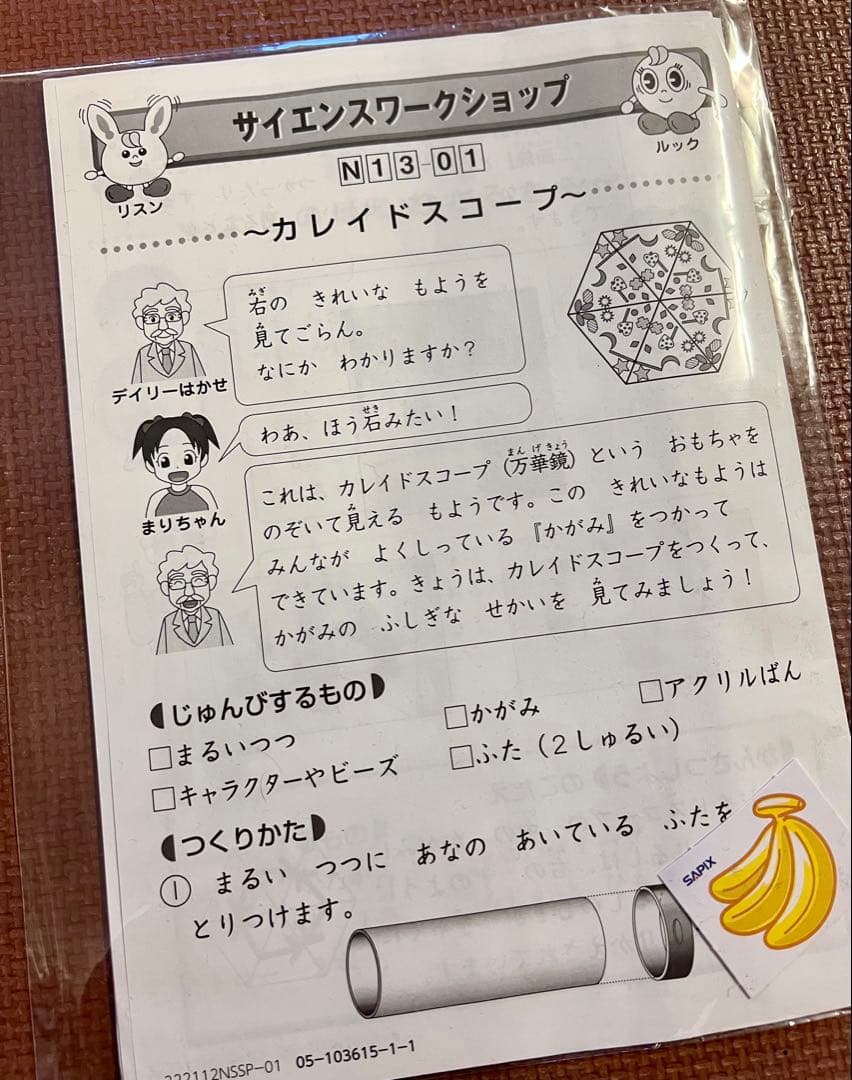 サイエンスワークショップ
リスン
ルック
N13-01
～カレイドスコープ～
右の きれいな もようを
見てごらん。
なにか わかりますか？
デイリーはかせ
わあ、ほう石みたい！
まりちゃん
これは、カレイドスコープ（万華鏡）という おもちゃを
のぞいて見える もようです。この きれいなもようは
みんなが よくしっている『かがみ』をつかって
できています。きょうは、カレイドスコープをつくって、
かがみの ふしぎな せかいを 見てみましょう！
じゅんびするもの
□まるいつつ □かがみ □アクリルばん
□キャラクターやビーズ □ふた（2しゅるい）
つくりかた
① まるい つつに あなの あいている ふたを
とりつけます。
SAPIX
222112NSSP-01 05-103615-1-1